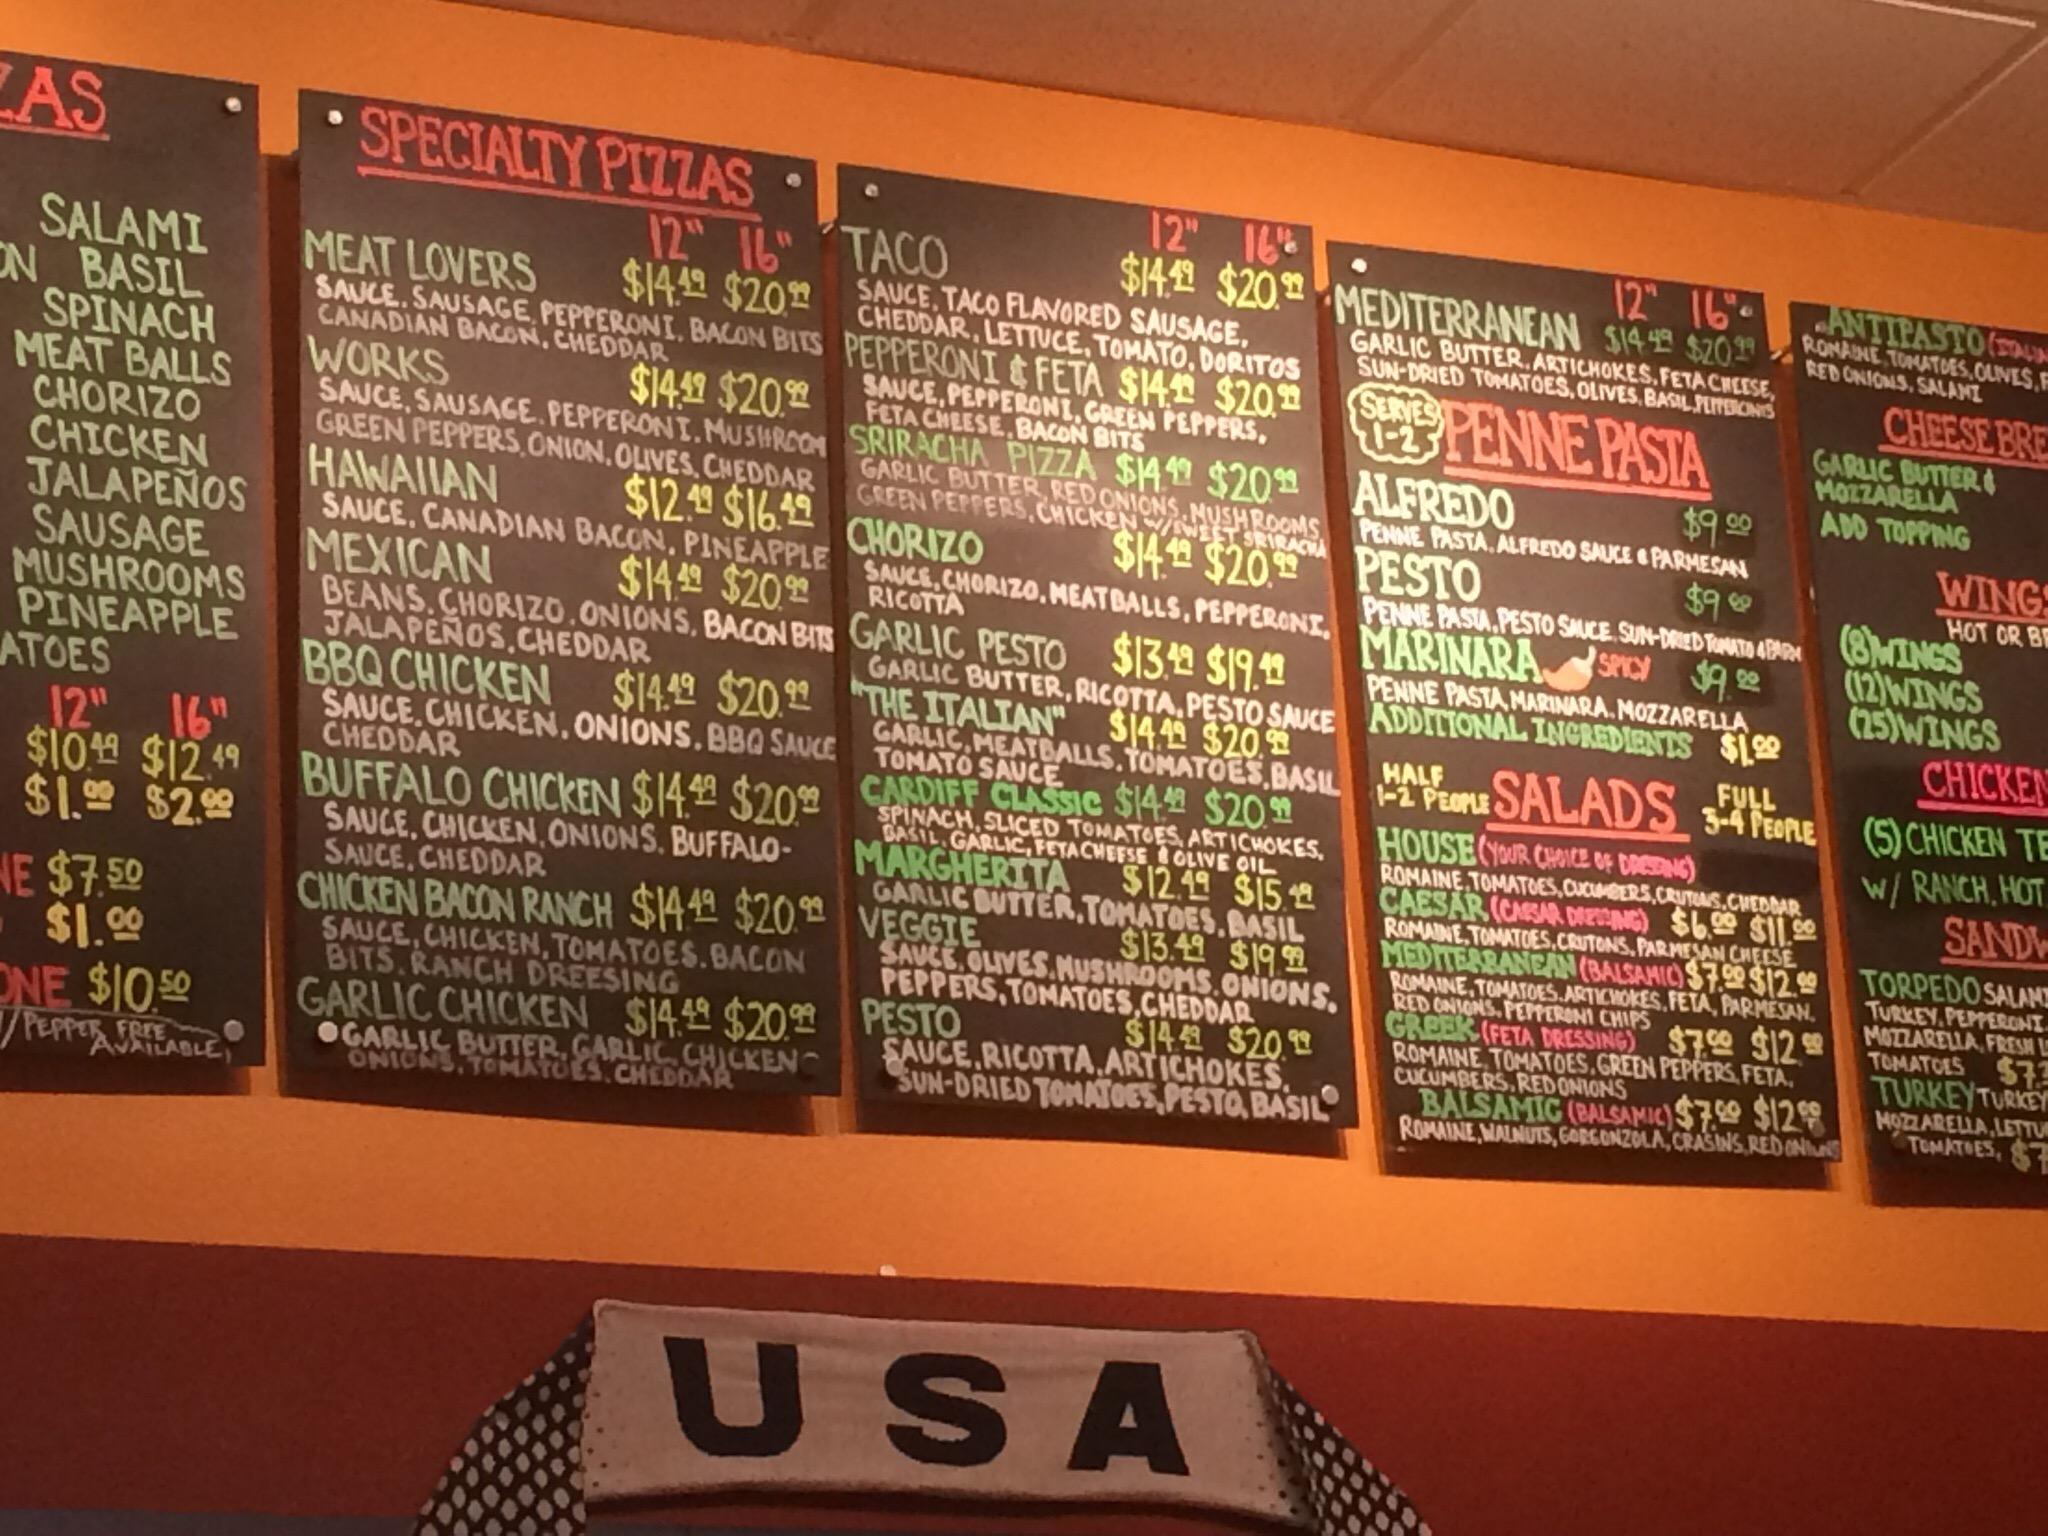 ZAS
SALAMI
ON BASIL
SPINACH
MEAT BALLS
CHORIZO
CHICKEN
JALAPEÑOS
SAUSAGE
MUSHROOMS
PINEAPPLE
ATOES
12" 16"
$10.49 $12.49
$1.00 $2.00
NE $7.50
$1.00
ONE $10.50
/PEPPER FREE
AVAILABLE,
SPECIALTY PIZZAS
12" 16"
MEAT LOVERS $14.49 $20.99
SAUCE, SAUSAGE, PEPPERONI, BACON BITS
CANADIAN BACON, CHEDDAR
WORKS $14.49 $20.99
SAUCE, SAUSAGE, PEPPERONI, MUSHROOM
GREEN PEPPERS, ONION, OLIVES, CHEDDAR
HAWAIIAN $12.49 $16.49
SAUCE, CANADIAN BACON, PINEAPPLE
MEXICAN $14.49 $20.99
BEANS, CHORIZO, ONIONS, BACON BITS
JALAPEÑOS, CHEDDAR
BBQ CHICKEN $14.49 $20.99
SAUCE, CHICKEN, ONIONS, BBQ SAUCE
CHEDDAR
BUFFALO CHICKEN $14.49 $20.99
SAUCE, CHICKEN, ONIONS, BUFFALO-
SAUCE, CHEDDAR
CHICKEN BACON RANCH $14.49 $20.99
SAUCE, CHICKEN, TOMATOES, BACON
BITS, RANCH DREESING
GARLIC CHICKEN $14.49 $20.99
GARLIC BUTTER, GARLIC, CHICKEN-
ONIONS, TOMATOES, CHEDDAR
12" 16"
TACO $14.49 $20.99
SAUCE, TACO FLAVORED SAUSAGE,
CHEDDAR, LETTUCE, TOMATO, DORITOS
PEPPERONI & FETA $14.49 $20.99
SAUCE, PEPPERONI, GREEN PEPPERS,
FETA CHEESE, BACON BITS
SRIRACHA PIZZA $14.49 $20.99
GARLIC BUTTER, RED ONIONS, MUSHROOMS,
GREEN PEPPERS, CHICKEN W/SWEET SRIRACHA
CHORIZO $14.49 $20.99
SAUCE, CHORIZO, MEATBALLS, PEPPERONI,
RICOTTA
GARLIC PESTO $13.49 $19.49
GARLIC BUTTER, RICOTTA, PESTO SAUCE
"THE ITALIAN" $14.49 $20.99
GARLIC, MEATBALLS, TOMATOES, BASIL
TOMATO SAUCE
CARDIFF CLASSIC $14.49 $20.99
SPINACH, SLICED TOMATOES, ARTICHOKES,
BASIL, GARLIC, FETA CHEESE & OLIVE OIL
MARGHERITA $12.49 $15.49
GARLIC BUTTER, TOMATOES, BASIL
VEGGIE $13.49 $19.99
SAUCE, OLIVES, MUSHROOMS, ONIONS,
PEPPERS, TOMATOES, CHEDDAR
PESTO $14.49 $20.99
SAUCE, RICOTTA, ARTICHOKES,
SUN-DRIED TOMATOES, PESTO, BASIL
12" 16"
MEDITERRANEAN $14.49 $20.99
GARLIC BUTTER, ARTICHOKES, FETA CHEESE,
SUN-DRIED TOMATOES, OLIVES, BASIL, PEPPERCINIS
SERVES
1-2
PENNE PASTA
ALFREDO $9.00
PENNE PASTA, ALFREDO SAUCE & PARMESAN
PESTO $9.00
PENNE PASTA, PESTO SAUCE, SUN-DRIED TOMATO & PARM
MARINARA SPICY $9.00
PENNE PASTA, MARINARA, MOZZARELLA
ADDITIONAL INGREDIENTS $1.00
HALF
1-2 PEOPLE
SALADS
FULL
3-4 PEOPLE
HOUSE (YOUR CHOICE OF DRESSING)
ROMAINE, TOMATOES, CUCUMBERS, CRUTONS, CHEDDAR
CAESAR (CAESAR DRESSING) $6.00 $11.00
ROMAINE, TOMATOES, CRUTONS, PARMESAN CHEESE
MEDITERRANEAN (BALSAMIC) $7.00 $12.00
ROMAINE, TOMATOES, ARTICHOKES, FETA, PARMESAN,
RED ONIONS, PEPPERONI CHIPS
GREEK (FETA DRESSING) $7.00 $12.00
ROMAINE, TOMATOES, GREEN PEPPERS, FETA,
CUCUMBERS, RED ONIONS
BALSAMIC (BALSAMIC) $7.00 $12.00
ROMAINE, WALNUTS, GORGONZOLA, CRASINS, RED ONIONS
ANTIPASTO (ITALIA
ROMAINE, TOMATOES, OLIVES,
RED ONIONS, SALAMI
CHEESE BRE
GARLIC BUTTER &
MOZZARELLA
ADD TOPPING
WINGS
HOT OR B
(8) WINGS
(12) WINGS
(25) WINGS
CHICKEN
(5) CHICKEN TE
W/ RANCH, HOT
SANDW
TORPEDO SALAMI
TURKEY, PEPPERONI,
MOZZARELLA, FRESH
TOMATOES $7.
TURKEY TURKEY
MOZZARELLA, LETTU
TOMATOES, $7
USA